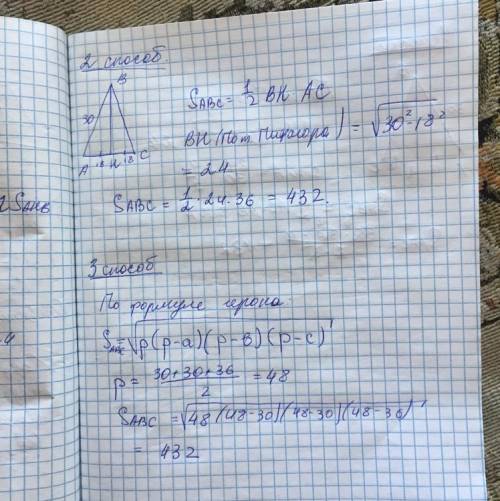 2 способ
B
30
A 18 H 18 C
S_ABC = 1/2 BH AC
BH (По т. Пифагора) = √(30² - 18²)
= 24
S_ABC = 1/2 · 24 · 36 = 432.
3 способ
По формуле герона
S_ABC = √(p(p-a)(p-в)(p-c))
p = (30+30+36)/2 = 48
S_ABC = √(48(48-30)(48-30)(48-36))
= 432